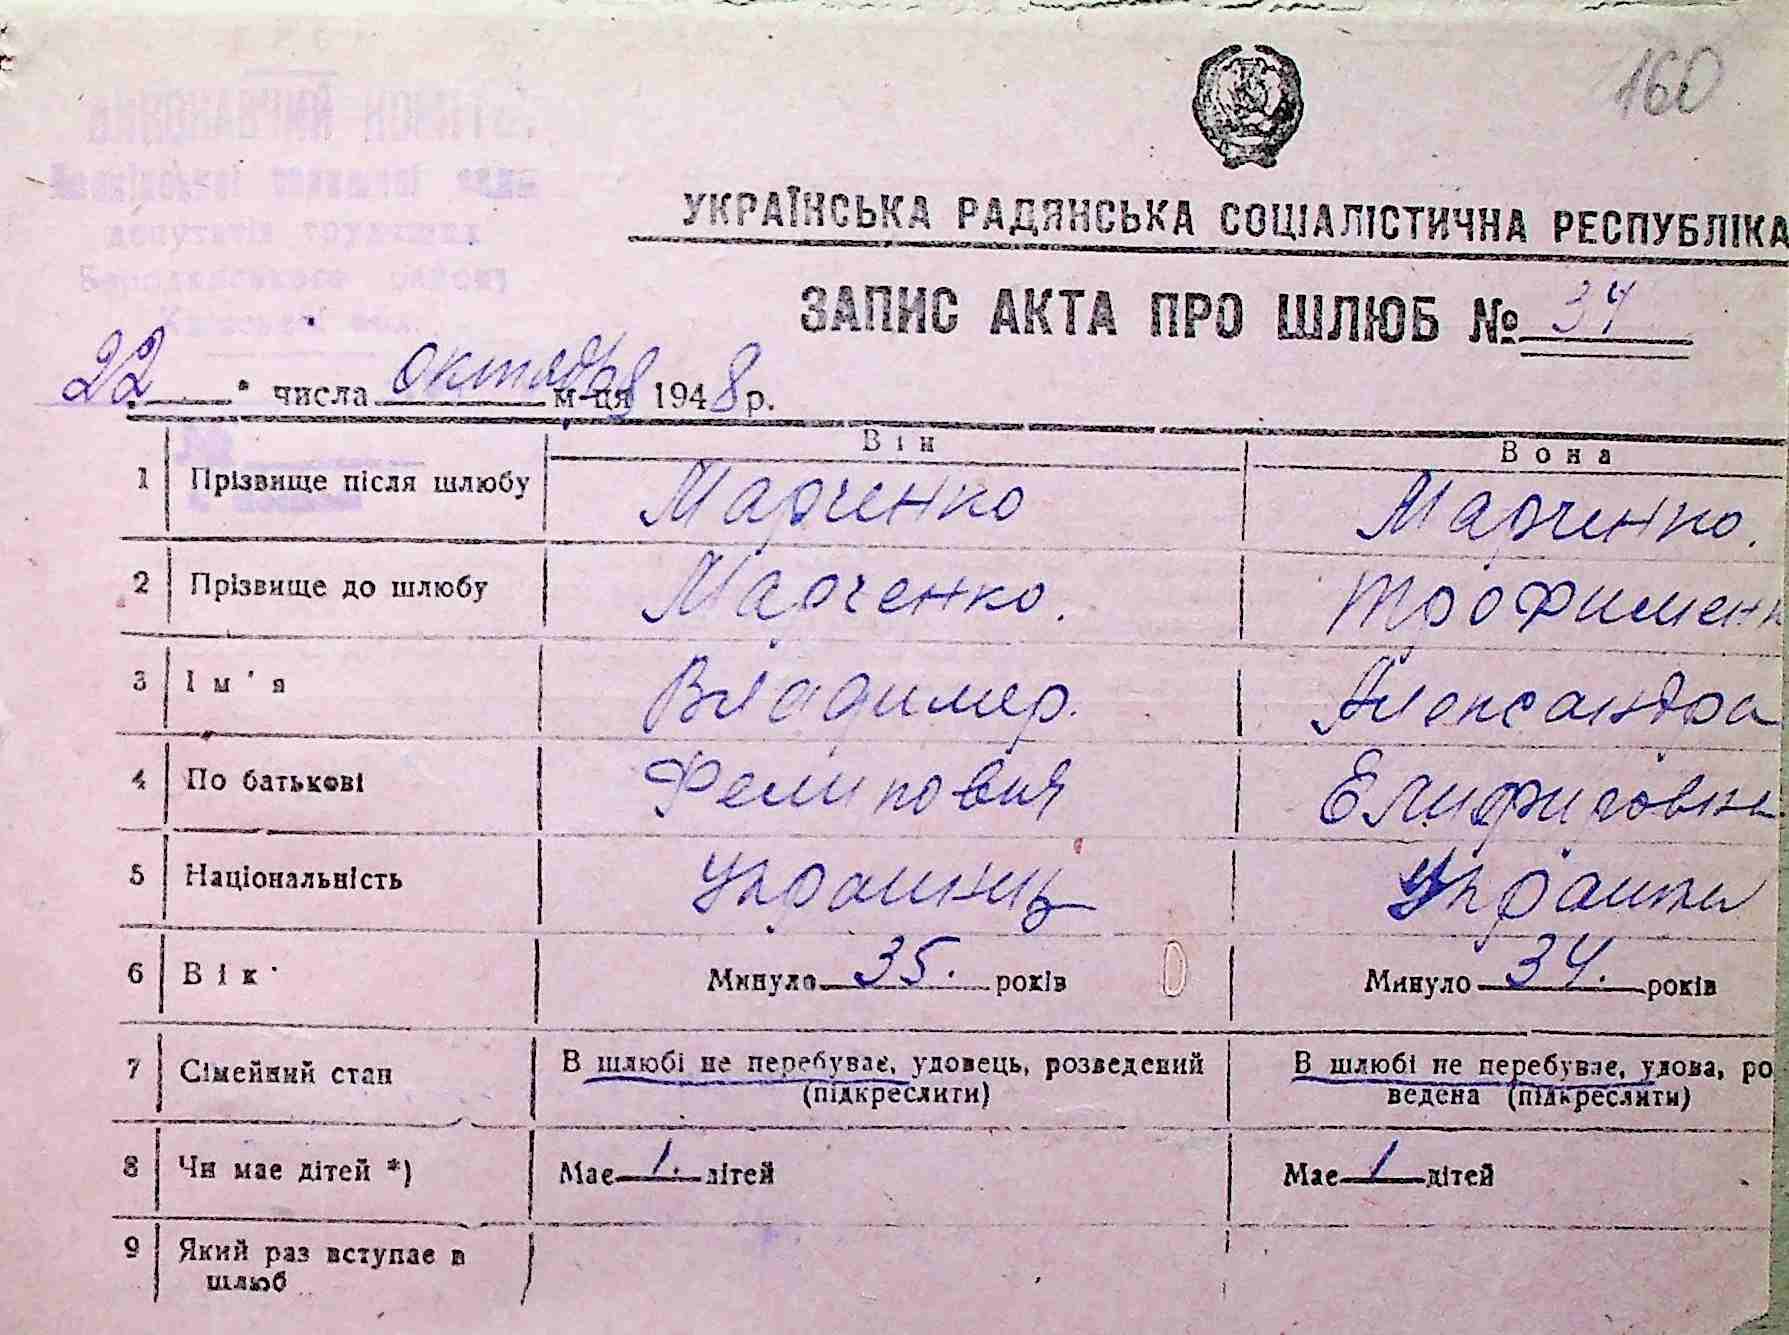 160
ВИКОНАВЧИЙ КОМІТЕТ
депутатів трудящих
УКРАЇНСЬКА РАДЯНСЬКА СОЦІАЛІСТИЧНА РЕСПУБЛІКА
ЗАПИС АКТА ПРО ШЛЮБ № 34
22 " числа октября м-ця 1948 р.
Він Вона
1 Прізвище після шлюбу Марченко Марченко.
2 Прізвище до шлюбу Марченко. Трофименк
3 Ім'я Владимер. Александра
4 По батькові Фелипович
5 Національність Украинец
6 Вік Минуло 35. років Минуло 34. років
7 Сімейний стан В шлюбі не перебуває, удовець, розведений В шлюбі не перебуває, удова, ро
(підкреслити) ведена (підкреслити)
8 Чи має дітей *) Має 1. дітей Має 1 дітей
9 Який раз вступає в
шлюб